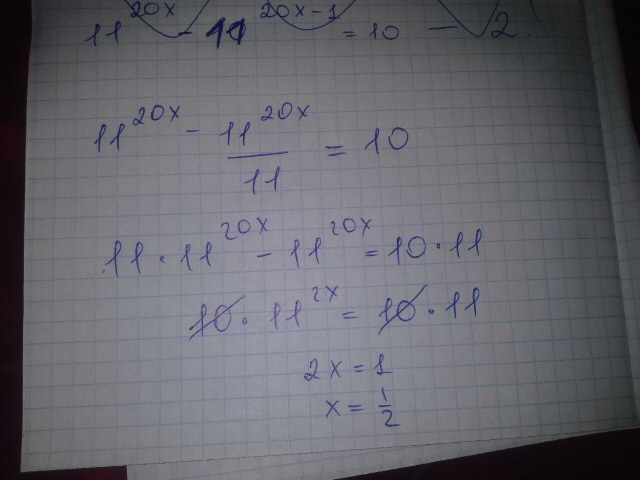 11^{20x} - 11^{20x-1} = 10 — √2
11^{20x} - \frac{11^{20x}}{11} = 10
11 · 11^{20x} - 11^{20x} = 10 · 11
10 · 11^{2x} = 10 · 11
2x = 1
x = \frac{1}{2}